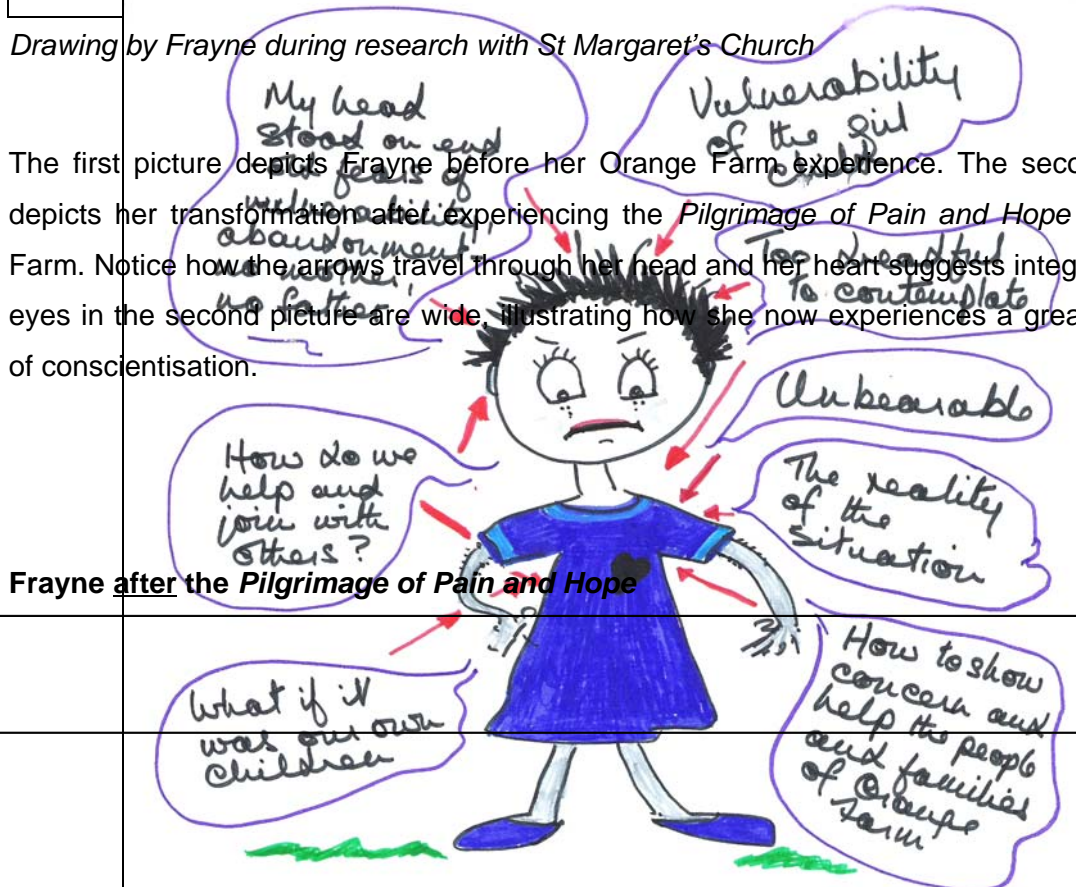 Drawing by Frayne during research with St Margaret's Church
The first picture depicts Frayne before her Orange Farm experience. The seco
depicts her transformation after experiencing the Pilgrimage of Pain and Hope
Farm. Notice how the arrows travel through her head and her heart suggests integ
eyes in the second picture are wide, illustrating how she now experiences a grea
of conscientisation.
Frayne after the Pilgrimage of Pain and Hope
My head
stood on end
fears of
vulnerability,
abandonment
no mother,
no father
Vulnerability
of the girl
child
Too dreadful
to contemplate
Unbearable
The reality
of the
situation
How do we
help and
join with
others?
What if it
was our own
children
How to show
concern and
help the people
and families
of Orange
Farm